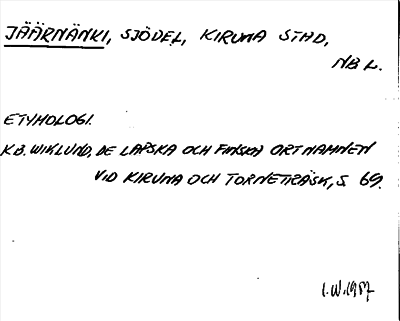 JÄÄRNÄNKI, SJÖDEL, KIRUNA STAD,
NB L.
ETYMOLOGI.
K.B. WIKLUND, DE LAPSKA OCH FINSKA ORTNAMNEN
VID KIRUNA OCH TORNETRÄSK, S 69.
I.W. 1987